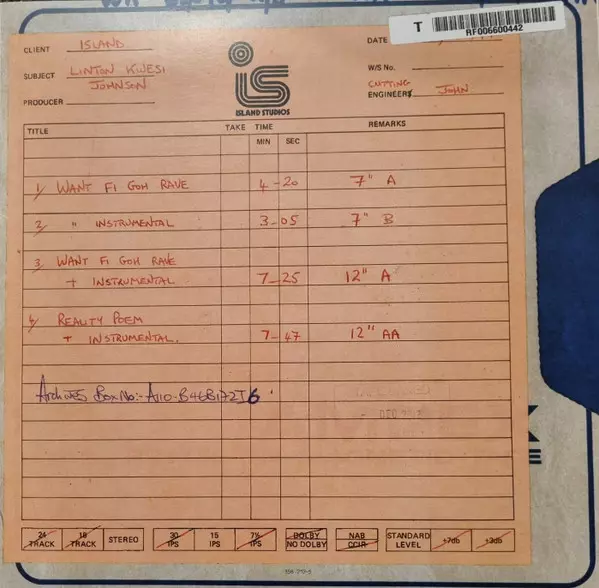 T
RF006600442
CLIENT ISLAND
DATE
SUBJECT LINTON KWESI
JOHNSON
W/S No.
PRODUCER
iS
ISLAND STUDIOS
CUTTING
ENGINEERS JOHN
TITLE TAKE TIME REMARKS
MIN SEC
1/ WANT FI GOH RAVE 4-20 7" A
2/ " INSTRUMENTAL 3-05 7" B
3/ WANT FI GOH RAVE
+ INSTRUMENTAL 7-25 12" A
4/ REALITY POEM
+ INSTRUMENTAL. 7-47 12" AA
Archives Box No:-
DEC
24 TRACK 16 TRACK STEREO 30 IPS 15 IPS 7½ IPS DOLBY NO DOLBY NAB CCIR STANDARD LEVEL +7db +3db